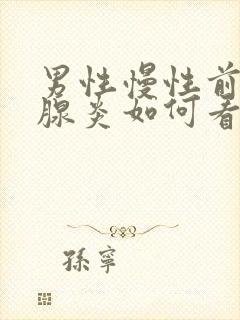 男性慢性前
腺炎如何看
孫寧